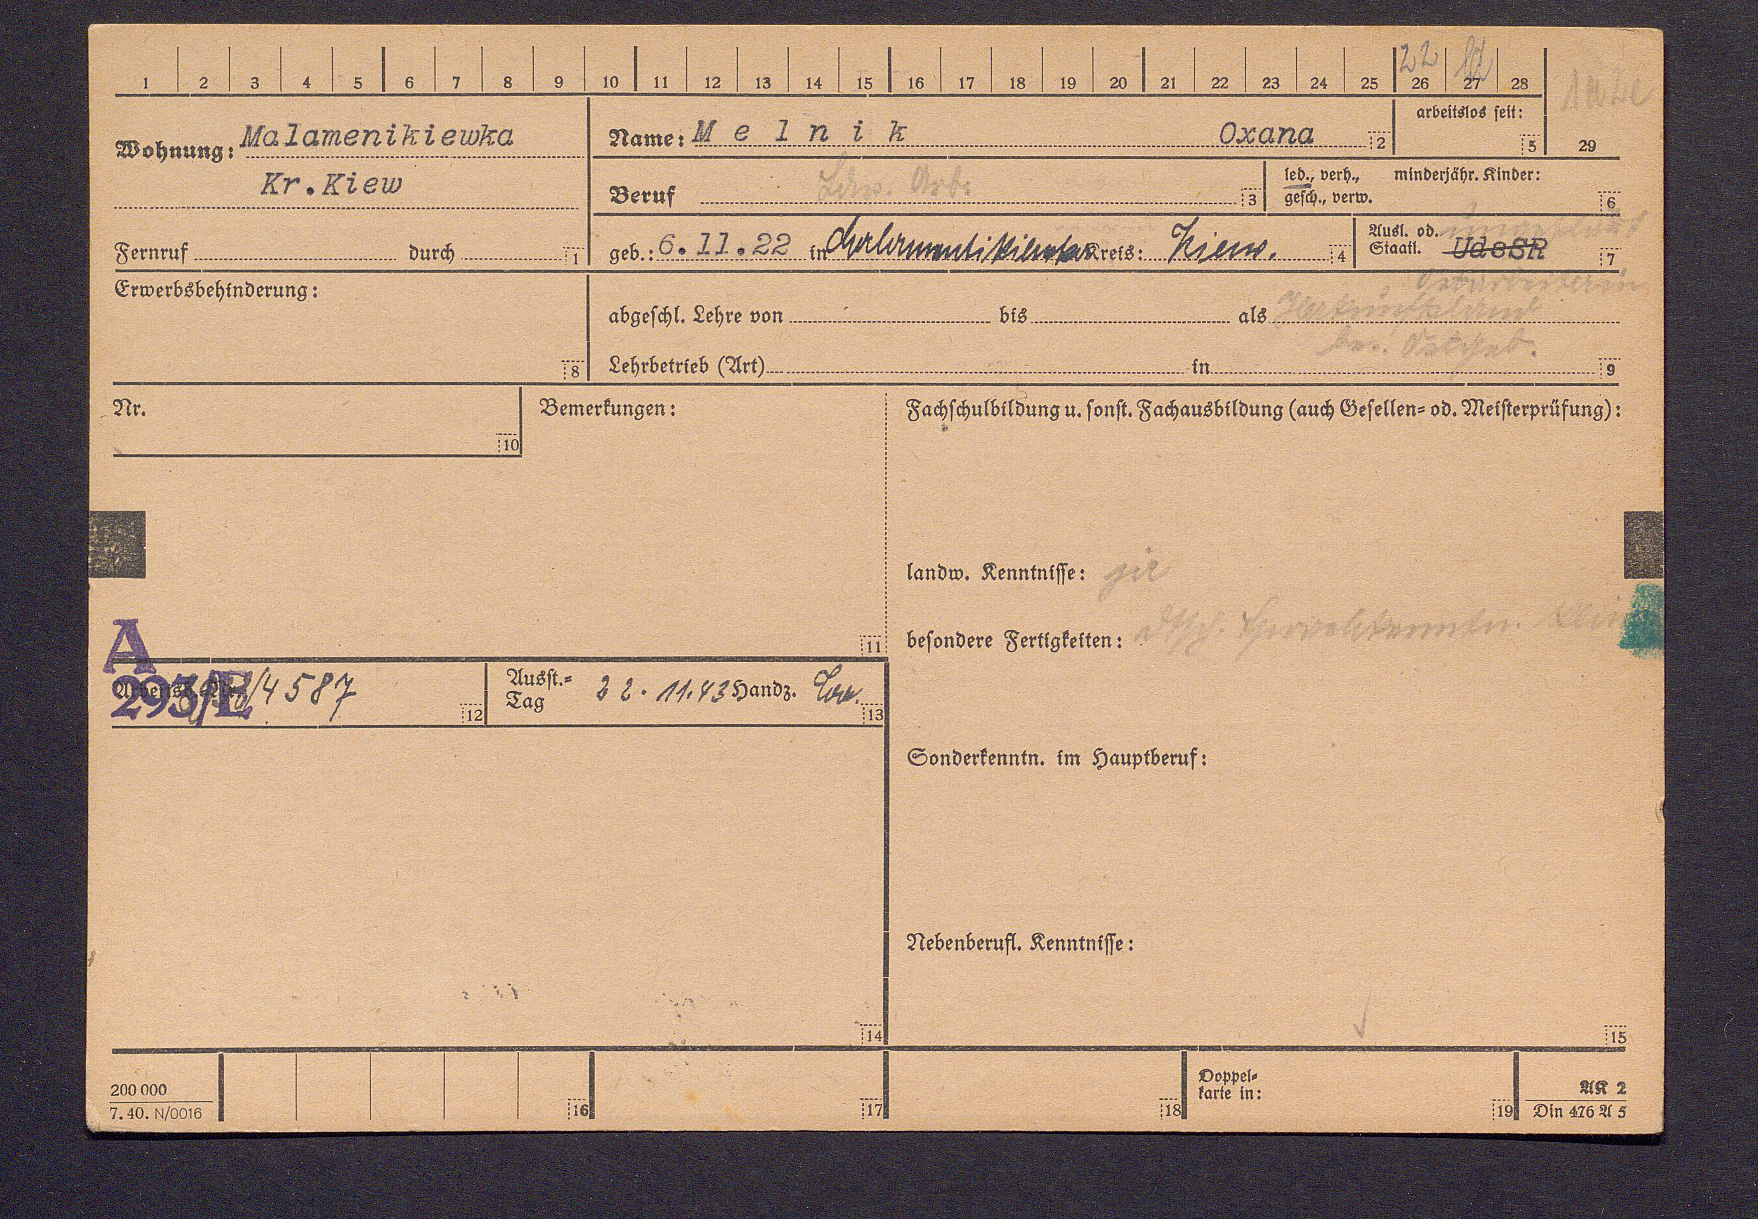 1 2 3 4 5 6 7 8 9 10 11 12 13 14 15 16 17 18 19 20 21 22 23 24 25 26 27 28 29
22
Wohnung: Malamenikiewka
Kr.Kiew
Fernruf durch 1
Name: Melnik Oxana 2
arbeitslos seit: 5
Beruf Ldw. Arb. 3
led., verh., minderjähr. Kinder:
gesch., verw. 6
geb.: 6.11.22 in Kreis: Kiew. 4
Ausl. od.
Staatl. UdSSR 7
Ostarbeiterin
Herkunftsland
bes. Ostgeb.
Erwerbsbehinderung: 8
abgeschl. Lehre von bis als
Lehrbetrieb (Art) in 9
Nr. 10
Bemerkungen: 11
Fachschulbildung u. sonst. Fachausbildung (auch Gesellen= od. Meisterprüfung):
landw. Kenntnisse:
besondere Fertigkeiten:
A
293/E
4587 12
Ausst.=
Tag 22.11.43 Handz. 13
Sonderkenntn. im Hauptberuf:
Nebenberufl. Kenntnisse:
14
15
200 000
7. 40. N/0016
16 17 18
Doppel=
karte in: 19
AK 2
Din 476 A 5